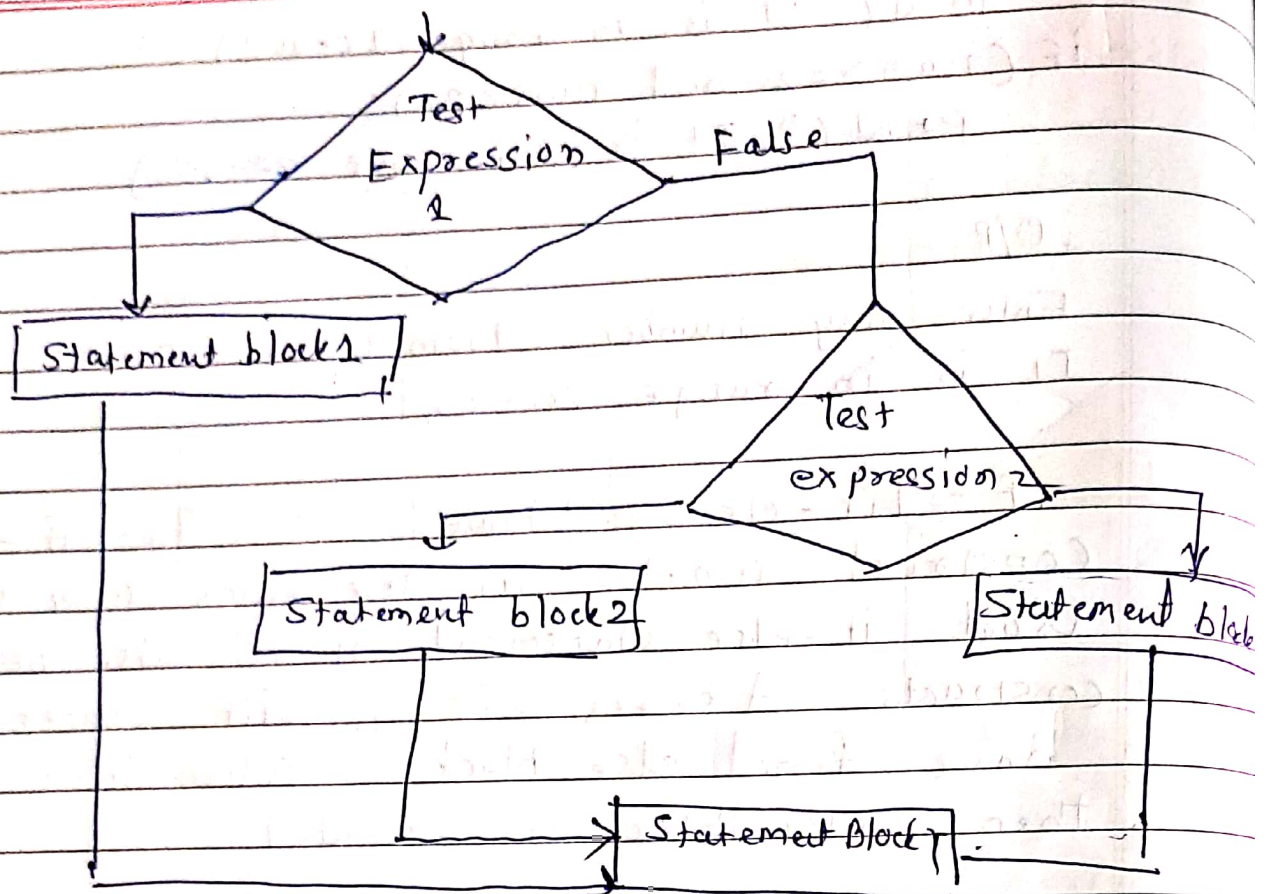 Test
Expression
1
False
Statement block1
Test
expression 2
Statement block2
Statement
Statement Block